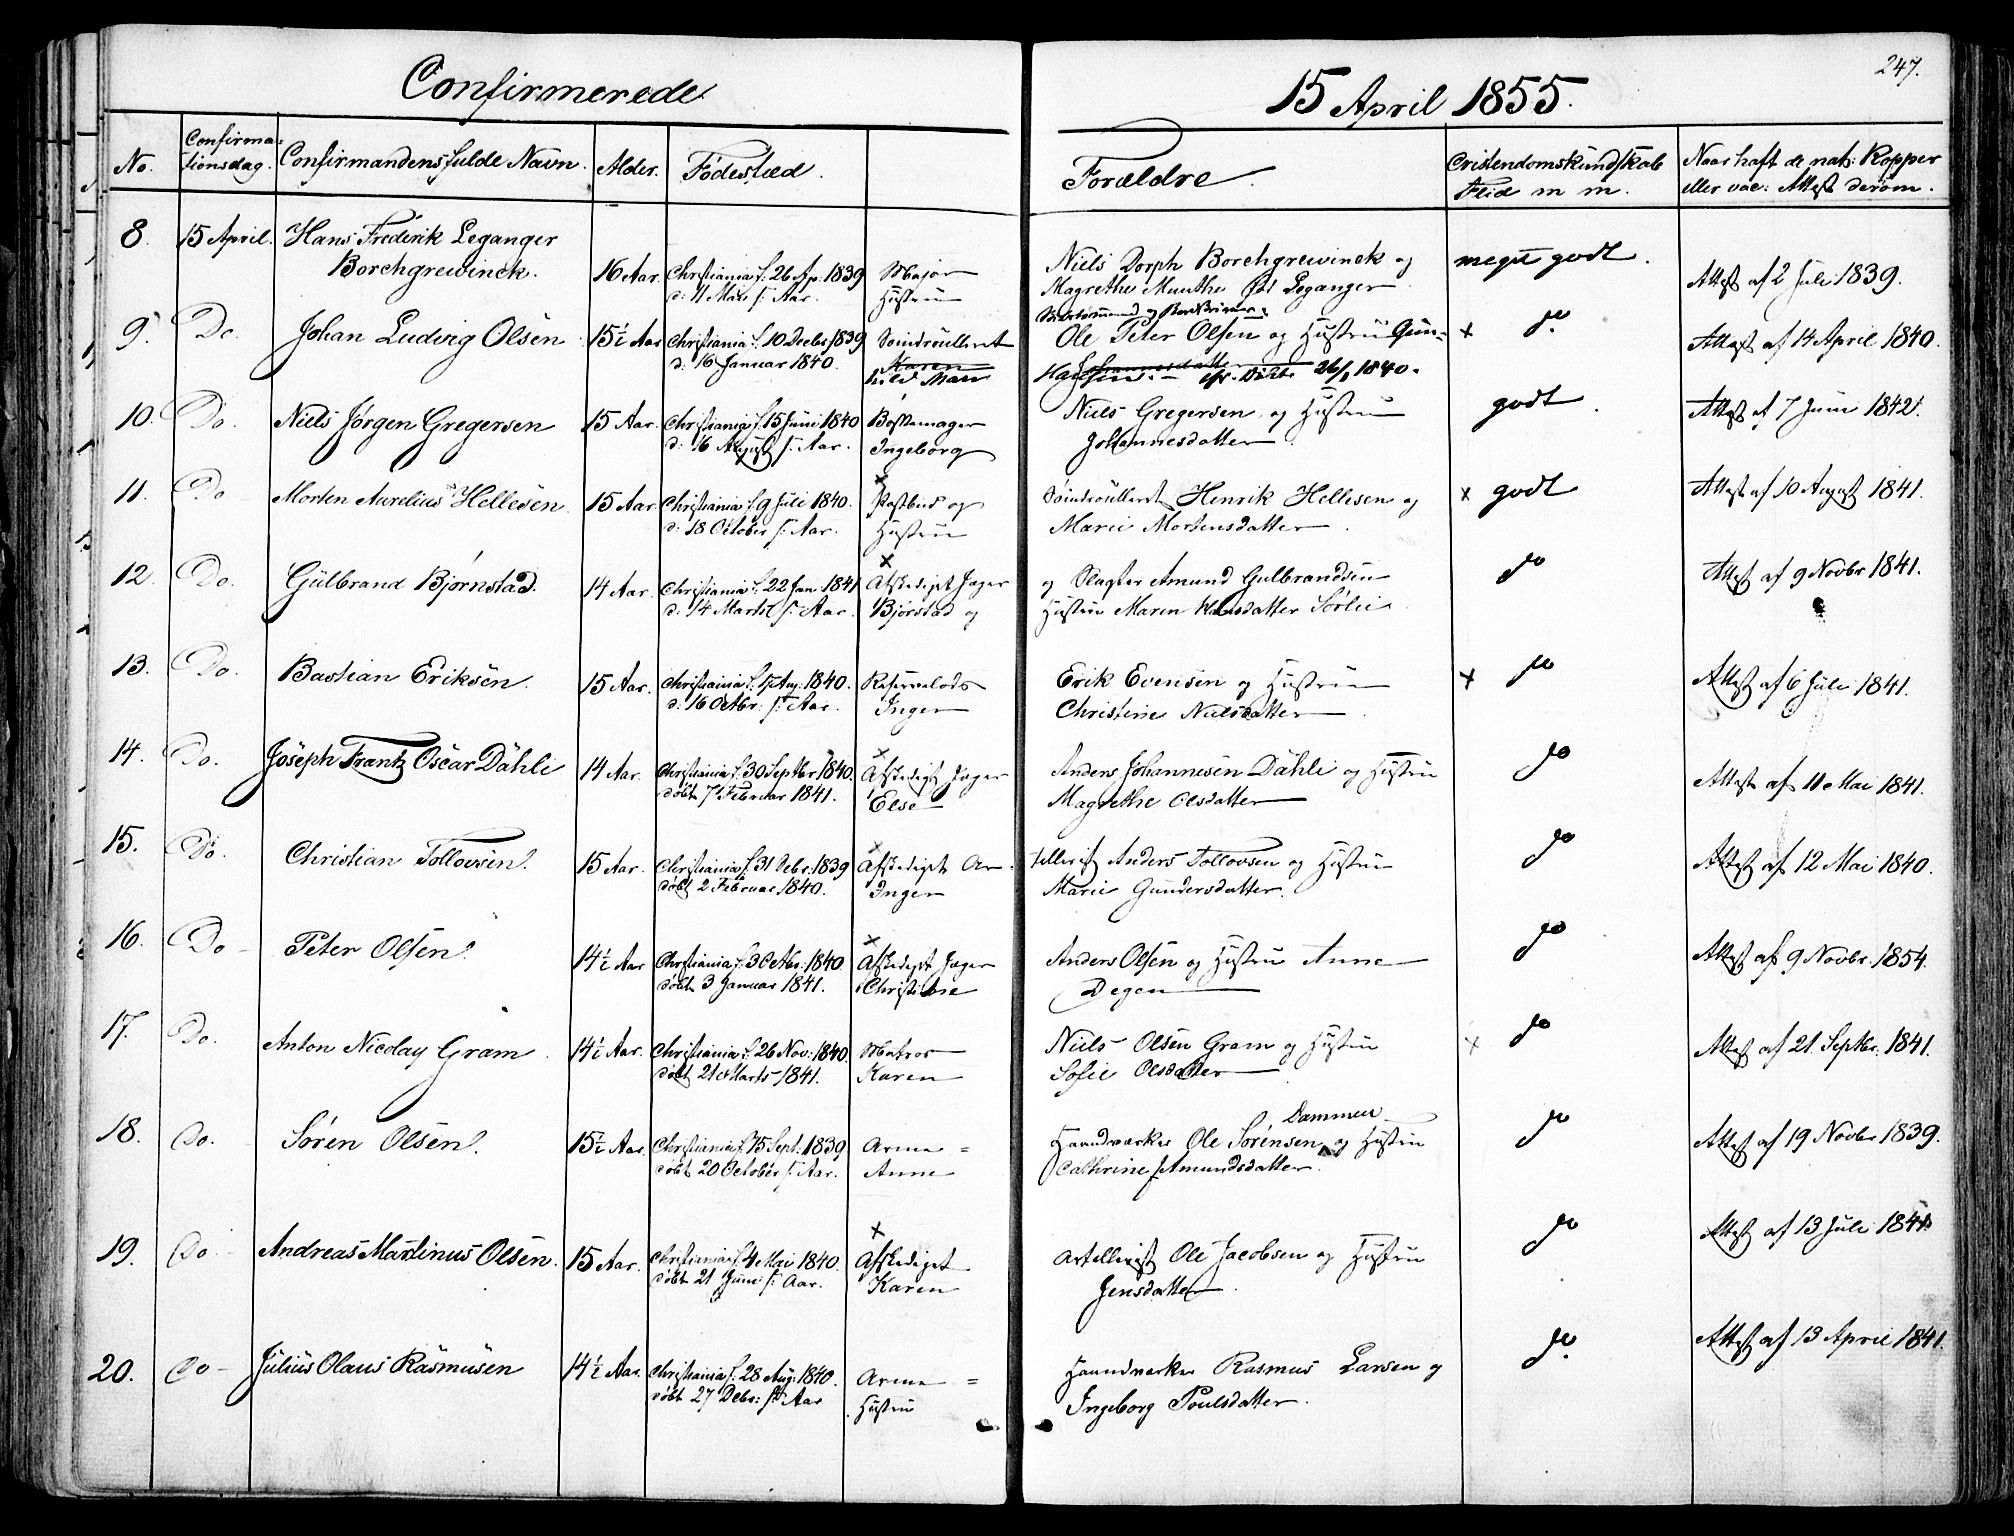 Confirmerede
15 April 1855.
247.
No. Confirma- tionsdag. Confirmandens fulde Navn. Alder. Fødested. Forældre. Cristendomskundskab Flid m m. Naar haft de nat: Kopper eller vac: Attest derom.
8. 15 April. Hans Frederik Leganger
Borchgrewinck. 16 Aar. Christiania f: 26 Ap. 1839 Major Niels Dorph Borchgrewinck og meget godt. Attest af 2 Juli 1839.
d: 11 Mai s: Aar. Hustru Magrethe Munthe født Leganger
9. Do. Johan Ludvig Olsen 15½ Aar Christiania f. 10 Decbr 1839 Søindroulleret Ole Peter Olsen og Hustru Gun- x do. Attest af 14 April 1840.
d: 16 Januar 1840. Karen Johannesdatter
hild Marie Hansen. 26/1 1840.
10. Do. Niels Jørgen Gregersen 15 Aar. Christiania f. 15 Juni 1840 Bøssemager Niels Gregersen og Hustru godt. Attest af 7 Juni 1842.
d: 16 August s: Aar. Ingeborg Johannesdatter
11. Do Morten Aurelius Hellesen 15 Aar. Christiania f. 9 Juli 1840. x Postbud og Søindroulleret Henrik Hellesen og x godt Attest af 10 August 1841.
d: 18 October s: Aar. Hustru Marie Mortensdatter
12. Do. Gulbrand Bjørnstad. 14 Aar. Christiania f: 22 Jan. 1841 x Afskediget Jæger og Slagter Amund Gulbrandsen do Attest af 9 Novbr 1841.
d: 14 Marts s: Aar. Bjørstad og Hustru Maren Hansdatter Sørlie
13. Do. Bastian Eriksen. 15 Aar. Christiania f: 17 Aug. 1840. Reservelods Erik Evensen og Hustru x do Attest af 6 Juli 1841.
d: 16 Octbr: s: Aar. Inger Christine Nielsdatter
14. Do. Joseph Frantz Oscar Dahli 14 Aar. Christiania f. 30 Septbr 1840. x Afskediget Jæger Anders Johannesen Dahli og Hustru do Attest af 11 Mai 1841.
døbt 7 Februar 1841. Else Magrethe Olsdatter
15. Do. Christian Tollovsen. 15 Aar. Christiania f. 31 Decbr. 1839 x Afskediget Ar- tellerist Anders Tollovsen og Hustru do Attest af 12 Mai 1840.
døbt 2 Februar 1840. Inger Marie Gundersdatter.
16. Do Peter Olsen. 14½ Aar Christiania f. 3 Octbr. 1840 x Afskediget Jæger Anders Olsen og Hustru Anne do Attest af 9 Novbr. 1854.
døbt 3 Januar 1841. Christine Degen
17. Do. Anton Nicolay Gram 14½ Aar. Christiania f. 26 Nov: 1840 Matros Niels Olsen Gram og Hustru x do Attest af 21 Septbr. 1841.
døbt 21 Marts 1841. Karen Sofie Olsdatter
18. Do. Søren Olsen. 15½ Aar. Christiania f. 15 Sept: 1839 Arme= Haandverker Ole Sørensen Dammen og Hustru do Attest af 19 Novbr 1839.
døbt 20 October s: Aar. Anne Cathrine Amundsdatter.
19. Do Andreas Martinus Olsen. 15 Aar. Christiania f. 4 Mai 1840. x Afskediget Artellerist Ole Jacobsen og Hustru do Attest af 13 Juli 1841.
døbt 21 Juni s: Aar. Karen Jensdatter
20. Do Julius Olaus Rasmusen 14½ Aar. Christiania f. 28 Aug: 1840. Arme= Haandverker Rasmus Larsen og do. Attest af 13 April 1841.
døbt 27 Debr: s: Aar Hustru Ingeborg Poulsdatter.